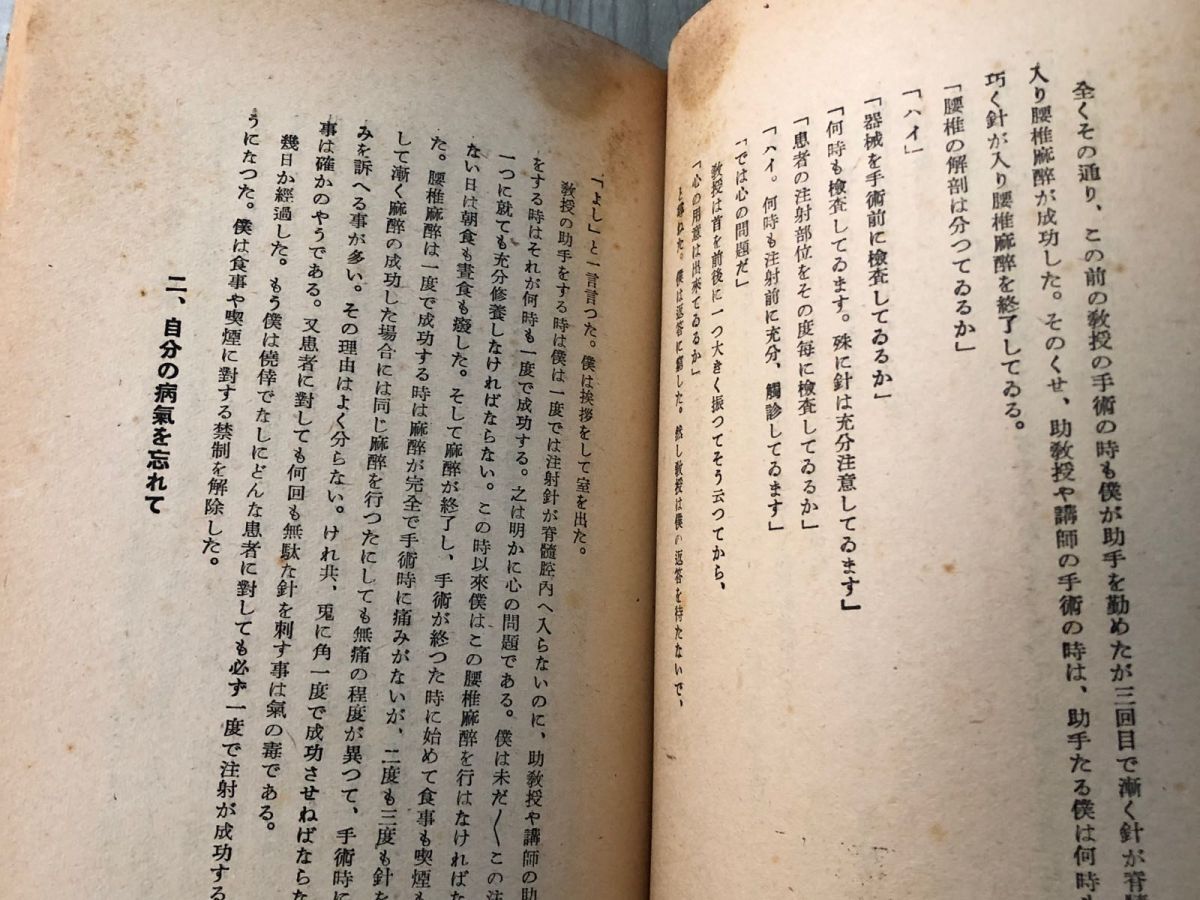 全くその通り、この前の教授の手術の時も僕が助手を勤めたが三回目で漸く針が脊
入り腰椎麻醉が成功した。そのくせ、助教授や講師の手術の時は、助手たる僕は何時も
巧く針が入り腰椎麻醉を終了してゐる。
「腰椎の解剖は分つてゐるか」
「ハイ」
「器械を手術前に檢査してゐるか」
「何時も檢査してゐます。殊に針は充分注意してゐます」
「患者の注射部位をその度每に檢査してゐるか」
「ハイ。何時も注射前に充分、觸診してゐます」
「では心の問題だ」
教授は首を前後に一つ大きく振つてそう云つてから、
「心の用意は出來てゐるか」
と尋ねた。僕は返答に窮した。然し教授は僕の返答を待たないで、
「よし」と一言言つた。僕は挨拶をして室を出た。
教授の助手をする時は僕は一度では注射針が脊髓腔內へ入らないのに、助教授や講師の助
をする時はそれが何時も一度で成功する。之は明かに心の問題である。僕は未だ〱この注
一つに就ても充分修養しなければならない。この時以來僕はこの腰椎麻醉を行はなければな
ない日は朝食も晝食も癈した。そして麻醉が終了し、手術が終つた時に始めて食事も喫煙も
た。腰椎麻醉は一度で成功する時は麻醉が完全で手術時に痛みがないが、二度も三度も針を
して漸く麻醉の成功した場合には同じ麻醉を行つたにしても無痛の程度が異つて、手術時に
みを訴へる事が多い。その理由はよく分らない。けれ共、兎に角一度で成功させねばならな
事は確かのやうである。又患者に對しても何回も無駄な針を刺す事は氣の毒である。
幾日か經過した。もう僕は僥倖でなしにどんな患者に對しても必ず一度で注射が成功する
うになつた。僕は食事や喫煙に對する禁制を解除した。
二、自分の病氣を忘れて